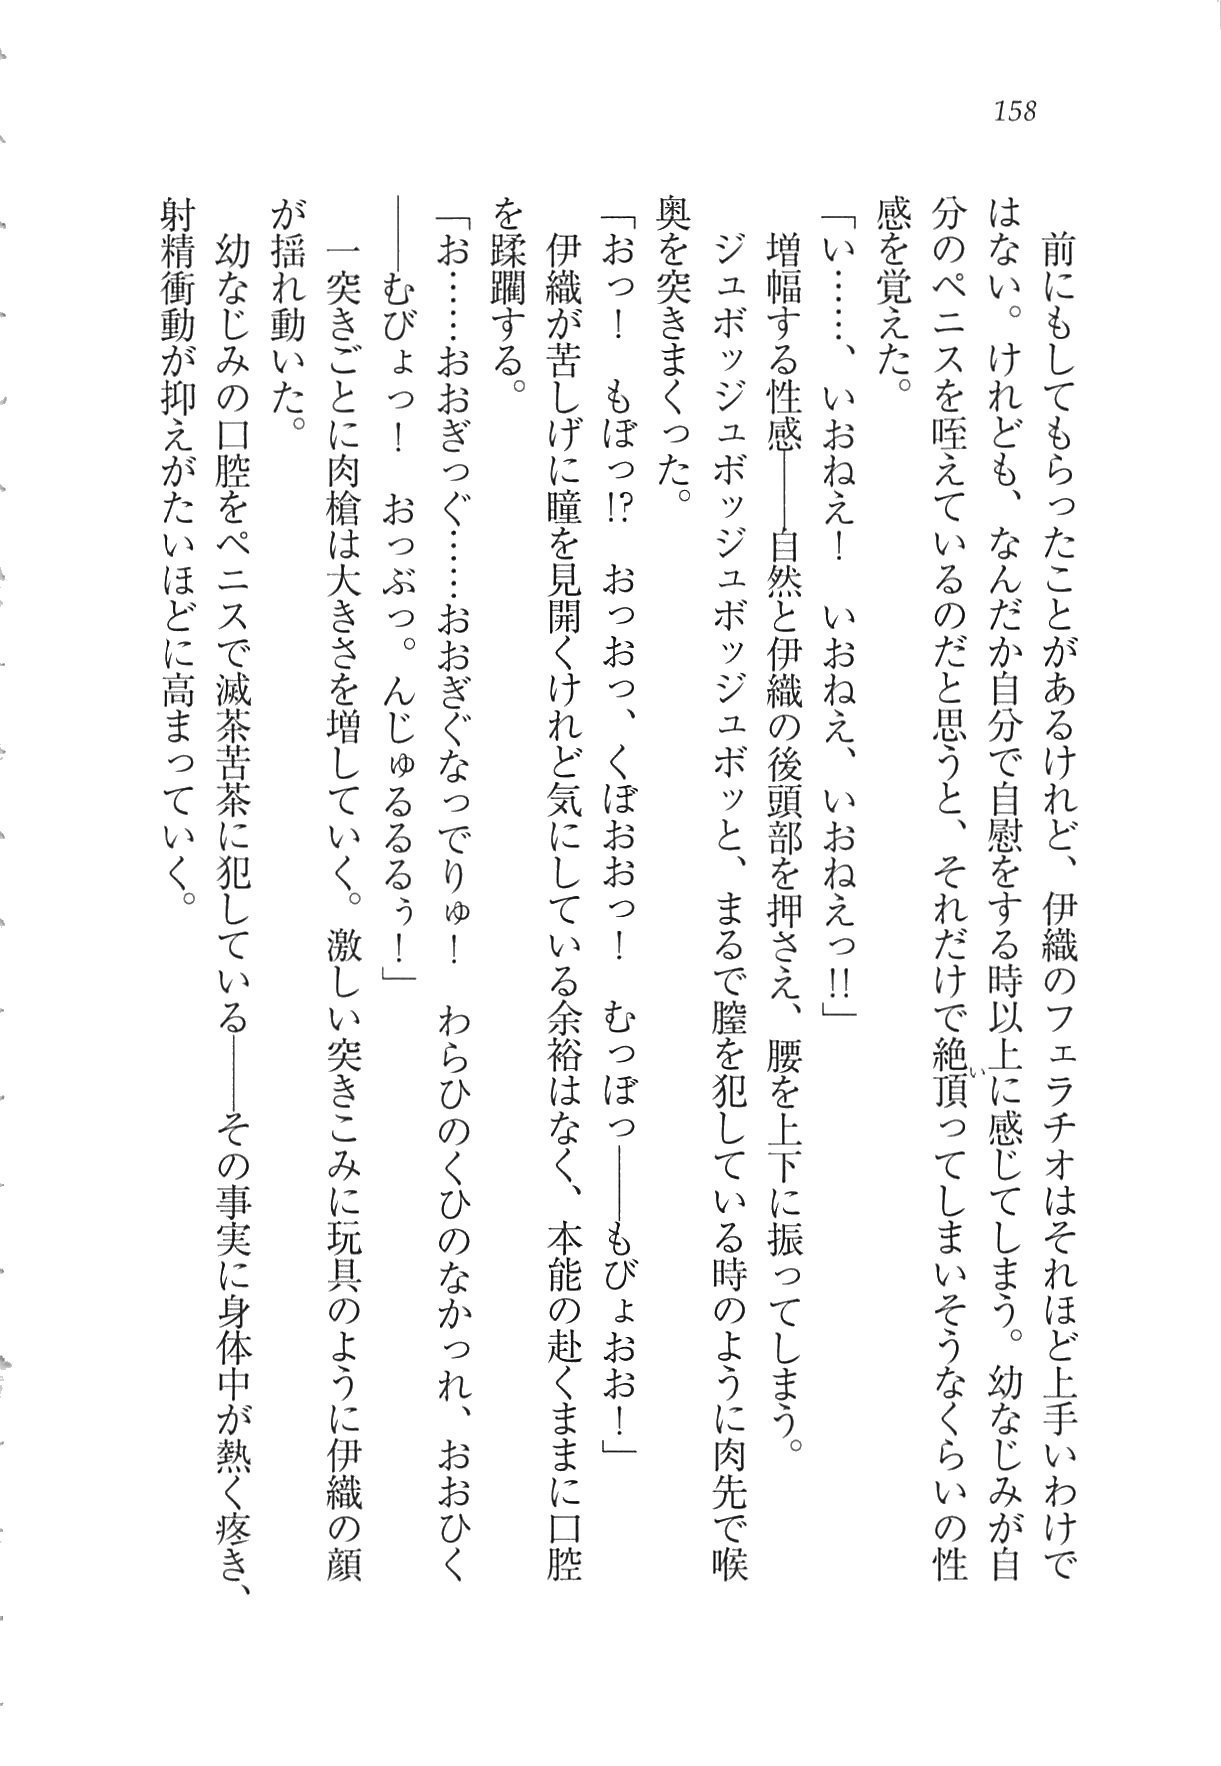 158
前にもしてもらったことがあるけれど、伊織のフェラチオはそれほど上手いわけで
はない。けれども、なんだか自分で自慰をする時以上に感じてしまう。幼なじみが自
分のペニスを咥えているのだと思うと、それだけで絶頂ってしまいそうなくらいの性
い
感を覚えた。
「い……、いおねえ！　いおねえ、いおねえっ!!」
増幅する性感――自然と伊織の後頭部を押さえ、腰を上下に振ってしまう。
ジュボッジュボッジュボッジュボッと、まるで膣を犯している時のように肉先で喉
奥を突きまくった。
「おっ！　もぼっ!?　おっおっ、くぼおおっ！　むっぼっ――もびょおお！」
伊織が苦しげに瞳を見開くけれど気にしている余裕はなく、本能の赴くままに口腔
を蹂躙する。
「お……おおぎっぐ……おおぎぐなっでりゅ！　わらひのくひのなかっれ、おおひく
――むびょっ！　おっぶっ。んじゅるるるぅ！」
一突きごとに肉槍は大きさを増していく。激しい突きこみに玩具のように伊織の顔
が揺れ動いた。
幼なじみの口腔をペニスで滅茶苦茶に犯している――その事実に身体中が熱く疼き、
射精衝動が抑えがたいほどに高まっていく。